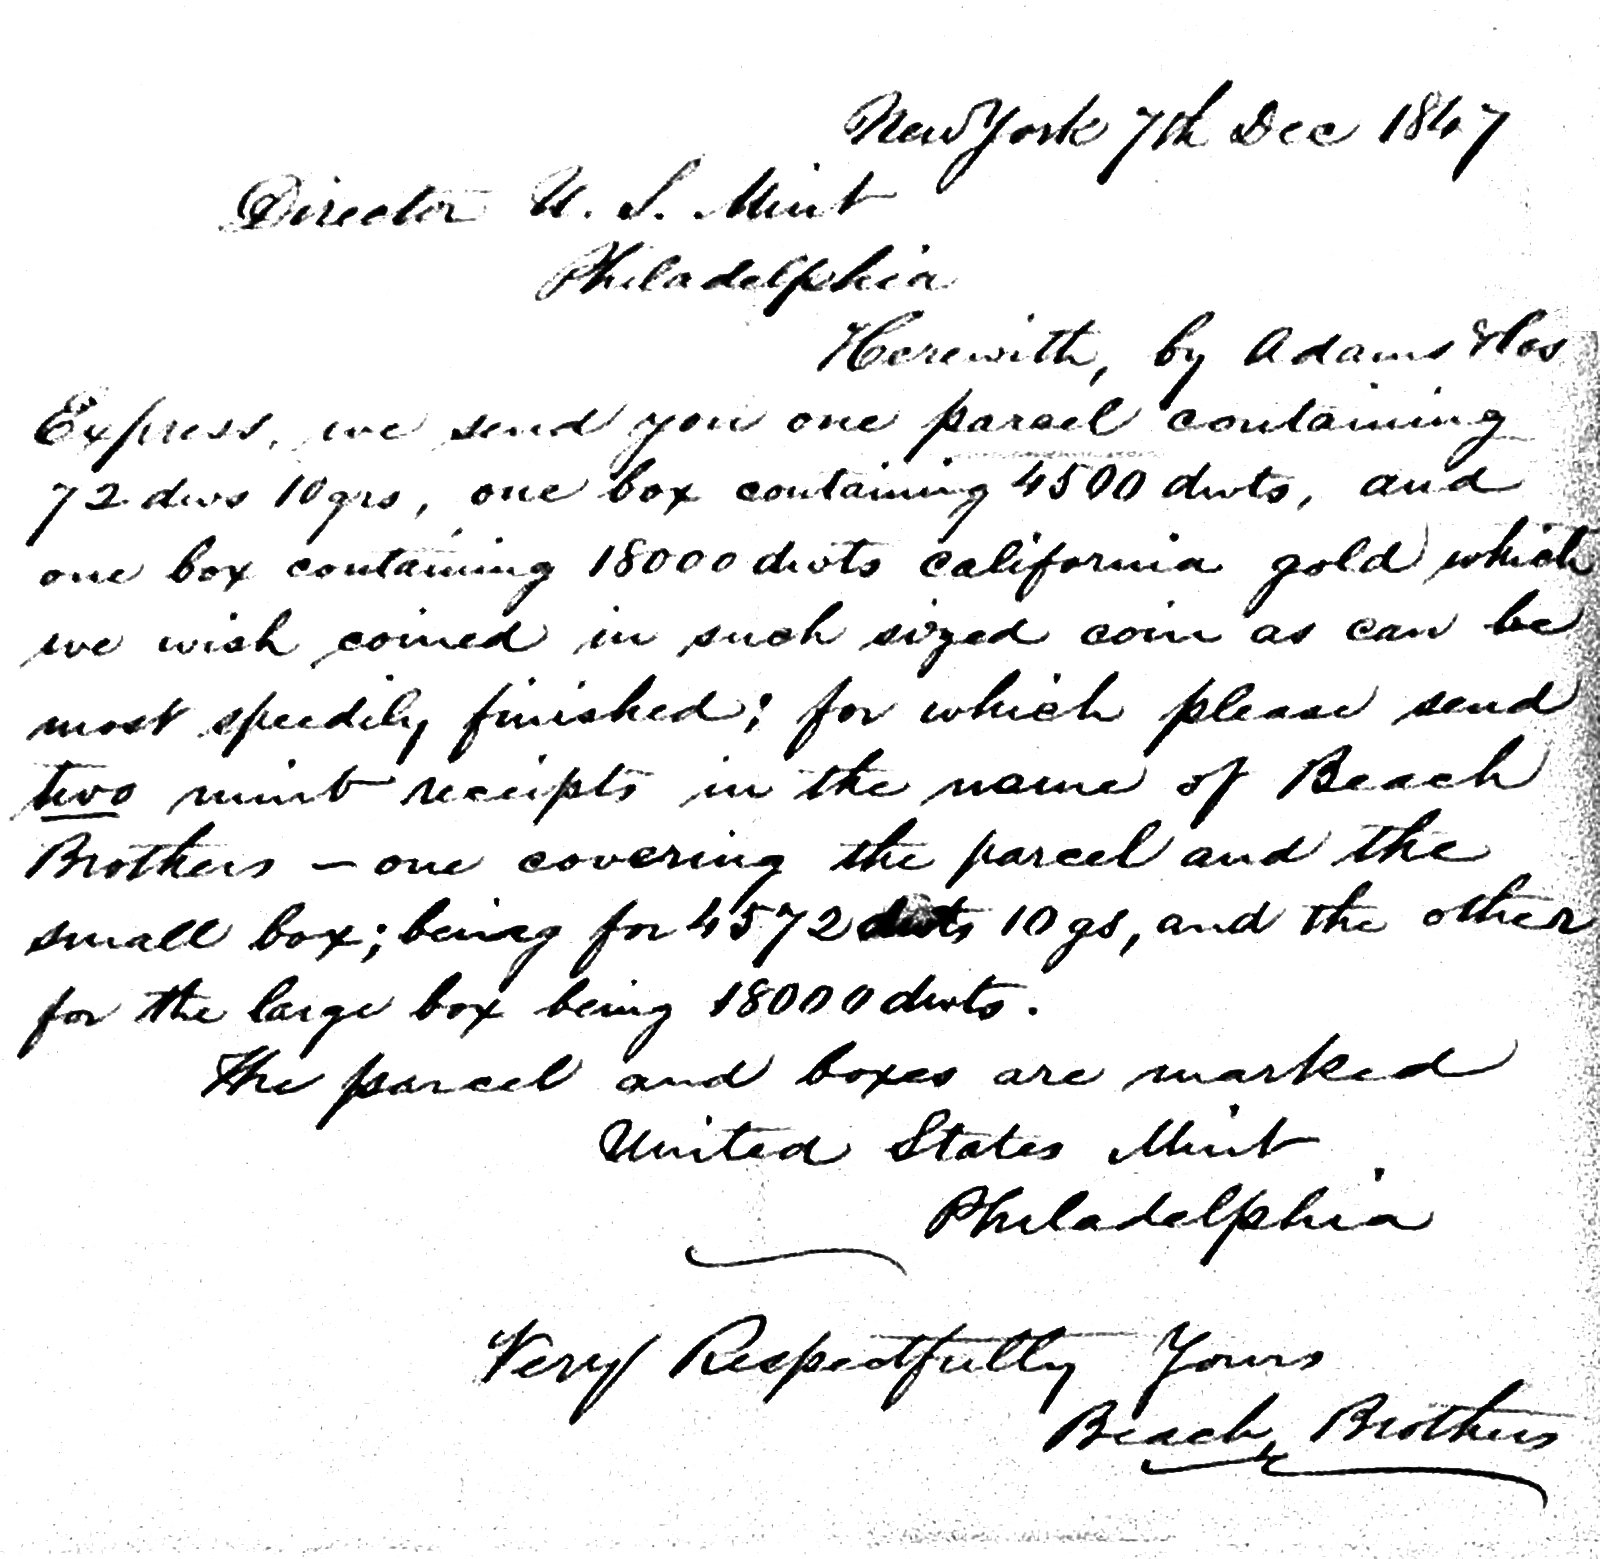 New York 7th Dec 1847
Director U. S. Mint
Philadelphia
Herewith, by Adams & Cos
Express, we send you one parcel containing
72 dws 10 grs, one box containing 4500 dwts, and
one box containing 18000 dwts california gold which
we wish coined in such sized coin as can be
most speedily finished; for which please send
two mint receipts in the name of Beach
Brothers – one covering the parcel and the
small box; being for 4572 dwts 10 gs, and the other
for the large box being 18000 dwts.
The parcel and boxes are marked
United States Mint
Philadelphia
Very Respectfully Yours
Beach Brothers